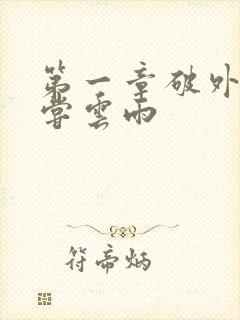 第一章破外
嘗雲雨
符帝炳